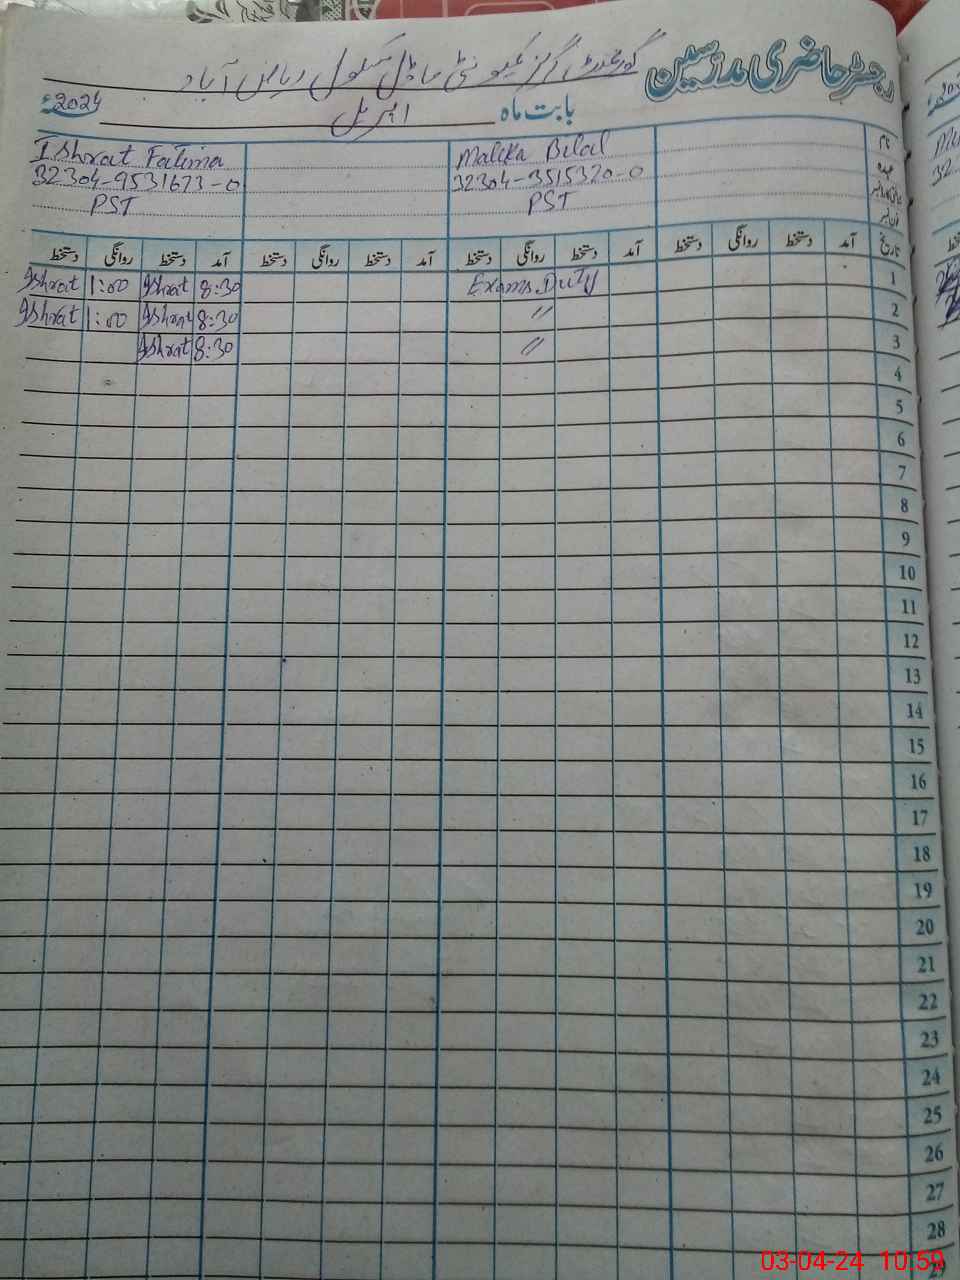 رجسٹر حاضری مدرسین
گورنمنٹ گرلز کمیونٹی ماڈل سکول ریاض آباد
بابت ماہ اپریل 2024ء
نام
عہدہ
شناختی کارڈ نمبر
فون نمبر
Malika Bilal
32304-3515320-0
PST
Ishrat Fatima
32304-9531673-0
PST
تاریخ آمد دستخط روانگی دستخط آمد دستخط روانگی دستخط آمد دستخط روانگی دستخط آمد دستخط روانگی دستخط
1 Exams Duty 8:30 Ishrat 1:00 Ishrat
2 〃 8:30 Ishrat 1:00 Ishrat
3 〃 8:30 Ishrat
4
5
6
7
8
9
10
11
12
13
14
15
16
17
18
19
20
21
22
23
24
25
26
27
28
29
03-04-24 10:59